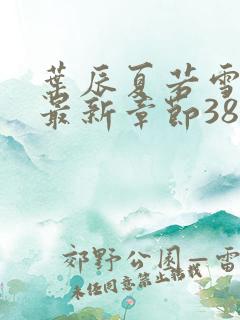 葉辰夏若雪
最新章節38
郊野公園—雷
未经同意禁止转载